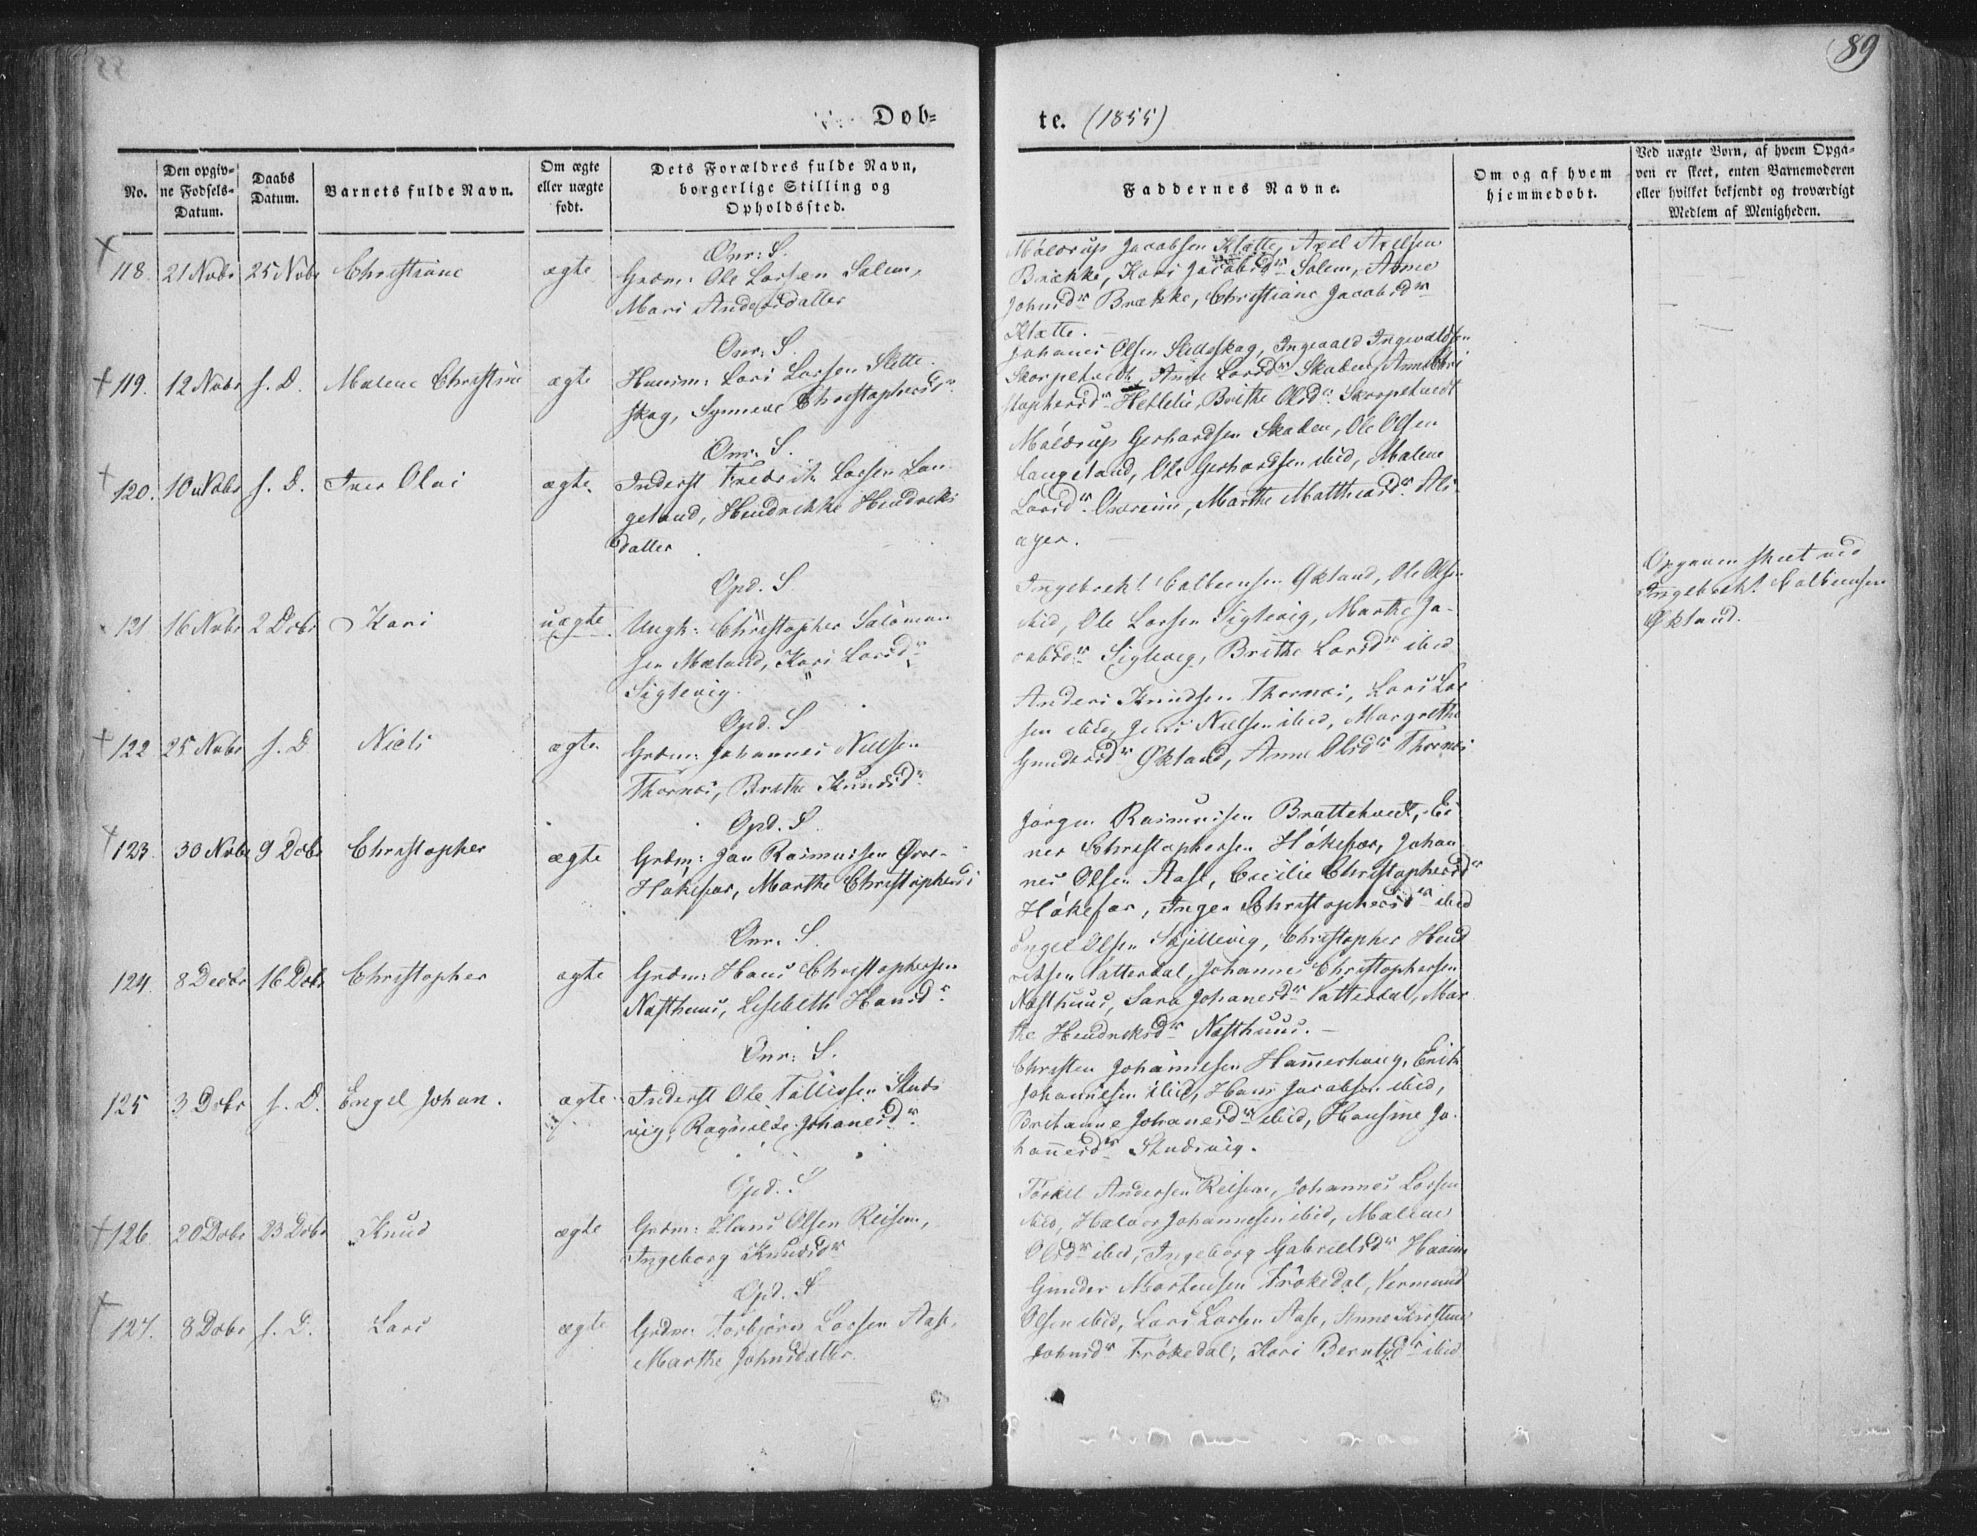 89
Døb-
te. (1855)
No.
Den opgiv-
ne Fødsels-
Datum.
Daabs
Datum.
Barnets fulde Navn.
Om ægte
eller uægte
født.
Dets Forældres fulde Navn,
borgerlige Stilling og
Opholdssted.
Faddernes Navne.
Om og af hvem
hjemmedøbt.
Ved uægte Børn, af hvem Opga-
ven er skeet, enten Barnemoderen
eller hvilket bekjendt og troværdigt
Medlem af Menigheden.
118. 21 Nvbr 25 Nvbr Christiane ægte
Ønr: S.
Grdm: Ole Larsen Salem,
Mari Andersdatter
Axel Axelsen
Brække, Kari Jacobsdr Solem, Anne
Johnsdr Brække, Christiane Jacobsdr
Klætte.
119. 12 Nvbr s. D. Malene Christine ægte
Ønr: S.
Huusm: Lars Larsen Slette-
skog, Synneve Christophersdr
Johanes Olsen Sletteskog, Ingevald Ingevaldsen
Skorpetvedt, Anne Larsdr Skaden, Anne Chri
stophersdr Hetlelie, Brithe Olsdr Skorpetvedt
120. 10 Nvbr s. D. Iver Olai ægte
Ønr. S.
Inderst Fredrik Larsen Lan-
geland, Hendrikke Hendriks
datter
Gerhardsen Skaden, Ole Olsen
Langeland, Ole Gerhardsen ibid, Malene
Larsdr Marthe Matthiasdr
ager.
121 16 Nvbr 2 Dcbr Kari uægte
Opd. S
Ungk: Christopher Salomon
sen Mæland, Kari Larsdr
Sigtevig.
Ingebrekt Calbeensen Økland, Ole Olsen
ibid, Ole Larsen Sigtevig, Marthe Ja-
cobsdr Sigtevig, Brithe Larsdr ibid
Opgaven skeet ved
Ingebrekt Calbeensen
Økland.
122 25 Nvbr s. D Niels ægte
Opd. S
Grdm: Johannes Nielsen
Thornæs, Brithe Knudsdr
Anders Knudsen Thornæs, Lars Lar
sen ibid, Jens Nielsen ibid, Margrethe
Gundersdr Økland, Anne Olsdr Thornæs
123. 30 Nvbr 9 Dcbr Christopher ægte
Opd. S.
Grdm: Jan Rasmussen Øvre-
Hakefar, Marthe Christophersd
Jørgen Rasmussen Brattehvedt, Ei
ner Christophersen Håkefar, Johan
nes Olsen Aase, Cicilie Christophersdr
Håkefar, Inger Christophersdr ibid
124. 8 Decbr 16 Dcbr Christopher ægte
Ønr. S.
Grdm: Hans Christophersen
Næsthuus, Lisebeth Hansdr
Engel Olsen Skjellevig, Christopher Hend
riksen Vatterdal, Johannes Christophersen
Næsthuus, Sara Johanesdr Vatterdal, Mar
the Hendriksdr Næsthuus. -
125 3 Dcbr s. D. Engel Johan. ægte
Ønr: S.
Inderst Ole Tollissen Studs
vig, Ragnilde Johanesdr
Christen Johannesen Hammerhaug, Erik
Johannesen ibid, Hans Jacobsen ibid,
Britanne Johanesdr ibid, Hansine Jo-
hannesdr Studsvig.
126. 20 Dcbr 23 Dcbr Knud ægte
Opd. S
Grdm: Hans Olsen Reisem,
Ingeborg Knudsdr
Torkel Andersen Reisem, Johannes Larsen
ibid, Halvor Johannesen ibid, Malene
Olsdr ibid, Ingeborg Gabrielsdr Haaim
127. 8 Dcbr s. D. Lars ægte
Opd. S
Grdm: Torbjørn Larsen Aase,
Marthe Johnsdatter.
Gunder Mortensen Frøkedal, Vermund
Olsen ibid, Lars Larsen Aase, Anne Kirstine
Johnsdr Frøkedal, Kari Berntsdr ibid